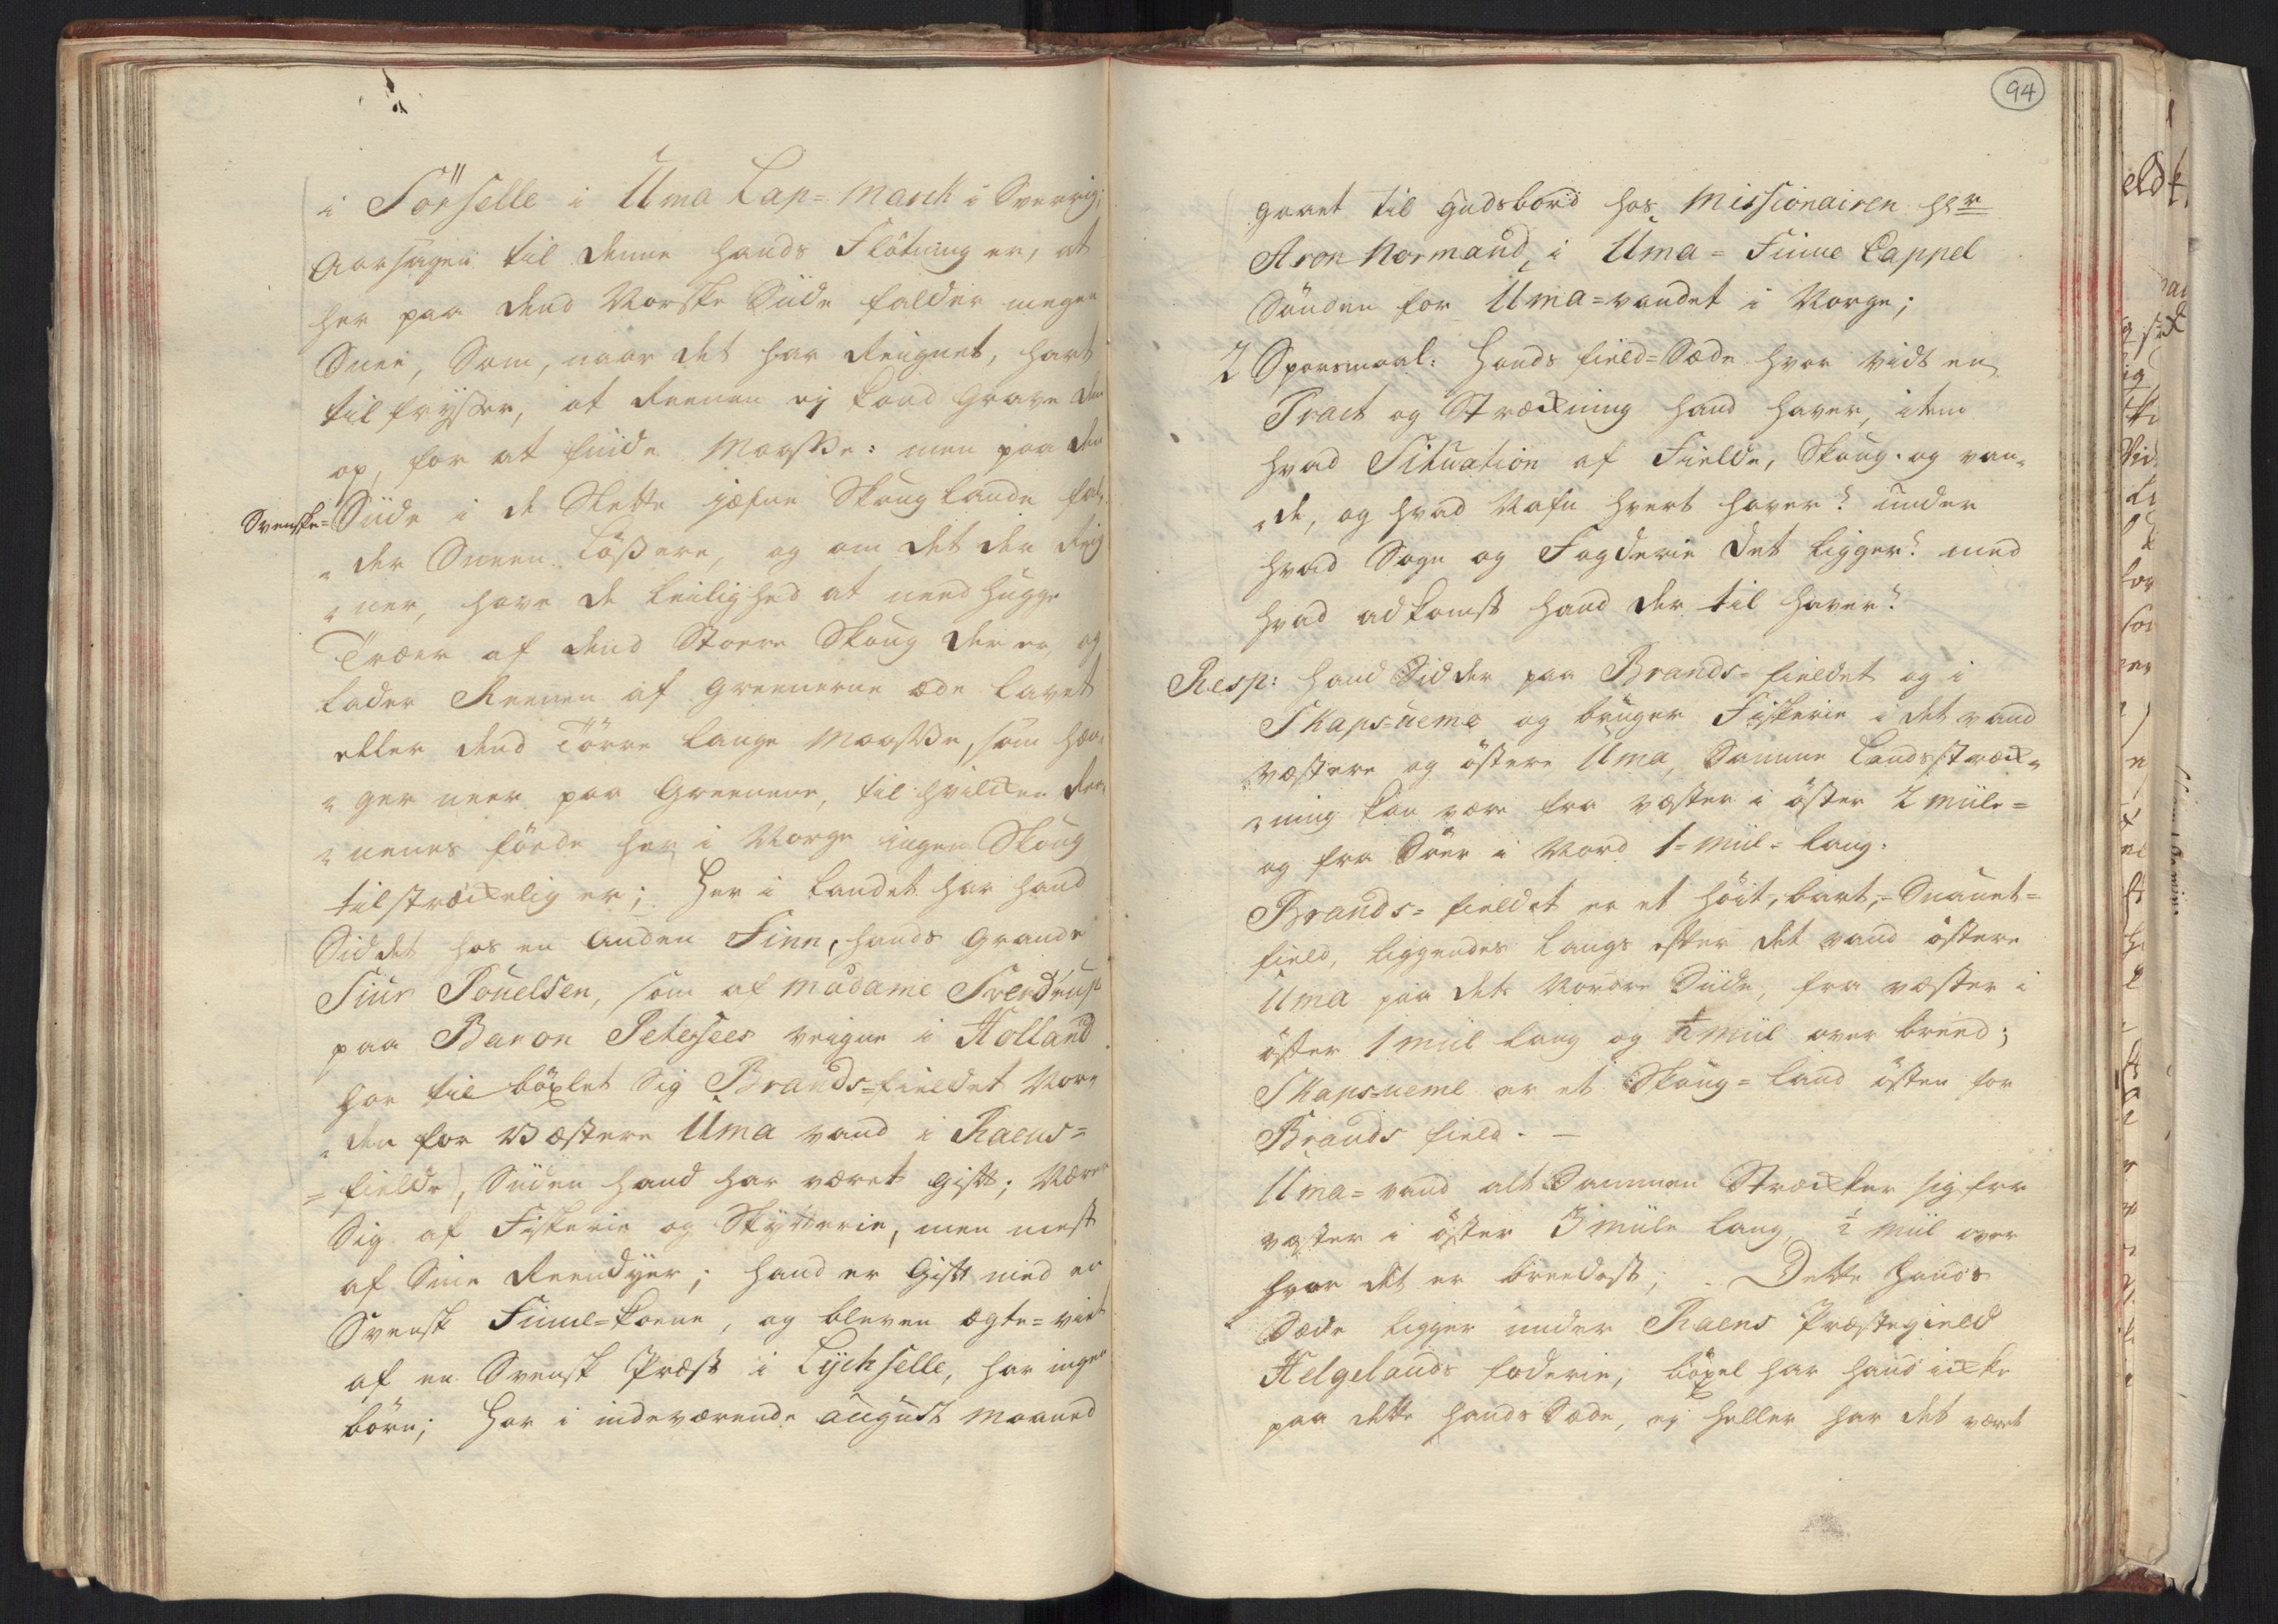 i Sörselle i Uma Lap=Marck i Sverrig;
Aarsagen til denne hands Flötning er, at
her paa dend Norske Siide falder megen
Snee, Som, naar det har Reignet, hart
til fryser, at Reenen ej kand grave den
op, for at finde Maasse: men paa den
Svenske=Siide i de Slette jæfne Skoug lande fal„
„der Sneen Lössere, og om det der Reig
„ner, have de leilighed at needhugge
Træer af dend Storre Skoug der er, og
lader Reenen af Greenerne æde Lavet
eller dend Törre lange Maasse, som hæn„
„ger neer paa Greenene, til hvilcken Ree„
„nenes förde her i Norge ingen Skoug
tilstræckelig er; Her i Landet har hand
Siddet hos en Anden Finn, hands Grande
Siur Pouelsen, som af Madame Sverdrup
paa Baron Petersees veigne i Holland
har til böxlet Sig Brands=fieldet Nor„
„den for Væstere Uma vand i Raens=
=fielde, Siiden hand har været gift; Nærer
Sig af Fiskerie og Skytterie, men mest
af Sine Reendyer; hand er Gift med en
Svensk Finne=Kone, og bleven ægte=viet
af en Svensk Præst i Lychselle, har ingen
börn; Har i indeværende August Maaned
94
gaaet til Gudsbord hos Missionairen Hr
Aron Normand, i Uma=Finne Cappel
Sönden for Uma=vandet i Norge;
2 Sporsmaal: Hands field=Sæde hvor vidt en
Tract og Stræckning hand haver, item
hvad Situation af Fielde, Skoug. og van„
„de, og hvad Nafn hvert haver? under
hvad Sogn og Fogderie det ligger? med
hvad adkomst hand der til haver?
Resp: hand Sidder paa Brands-fieldet og i
Skaps=neme og bruger Fiskerie i det vand
væstere og östere Uma, Samme Landsstræck„
„ning kan være fra væster i öster 2 miile=
og fra Söer i Nord 1=miil=lang.
Brands=fieldet er et höit, bart,=Snauet=
field, liggendes langs efter det vand östere
Uma paa dets Nordre Siide, fra væster i
öster 1 miil lang og ½ miil over breed;
Skaps=neme er et Skoug=land östen for
Brands field. —
Uma=vand alt Sammen Strecker sig fra
væster i öster 3 miile lang, ½ miil over
hvor det er breedest; Dette hands
Sæde ligger under Raens Præstegield
Helgelands foderie, böxel har hand icke
paa dette hands Sæde, ej heller har det været